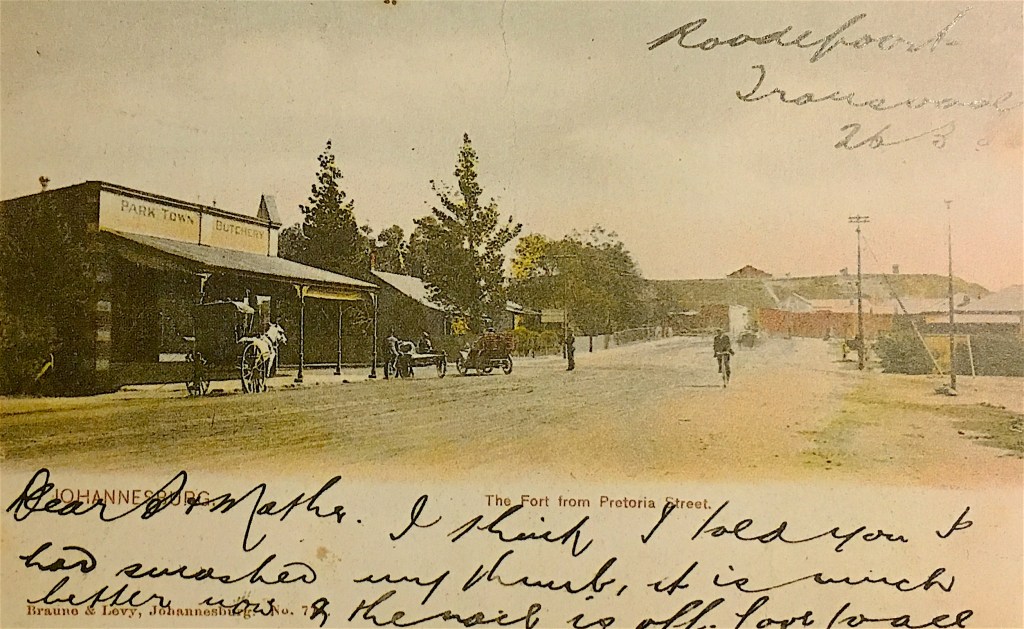 Roodepoort
Transvaal
26 3
PARK TOWN BUTCHERY
JOHANNESBURG. The Fort from Pretoria Street.
Dear & Mother. I think I told you I
had smashed my thumb, it is much
better now & the nail is off. Love to all
Braune & Levy, Johannesburg. No.